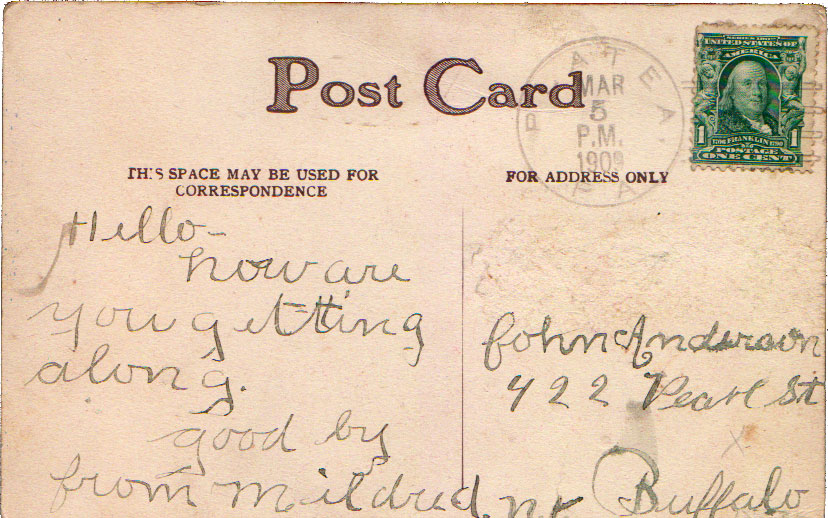 Post Card
PLATEA
MAR
5
P.M.
1909
PA.
SERIES 1902
UNITED STATES OF
AMERICA
1 1706 FRANKLIN 1790 1
POSTAGE
ONE CENT
THIS SPACE MAY BE USED FOR
CORRESPONDENCE
FOR ADDRESS ONLY
Hello-
how are
you getting
along.
good by
from Mildred.
John Anderson
422 Pearl St
Buffalo
n y